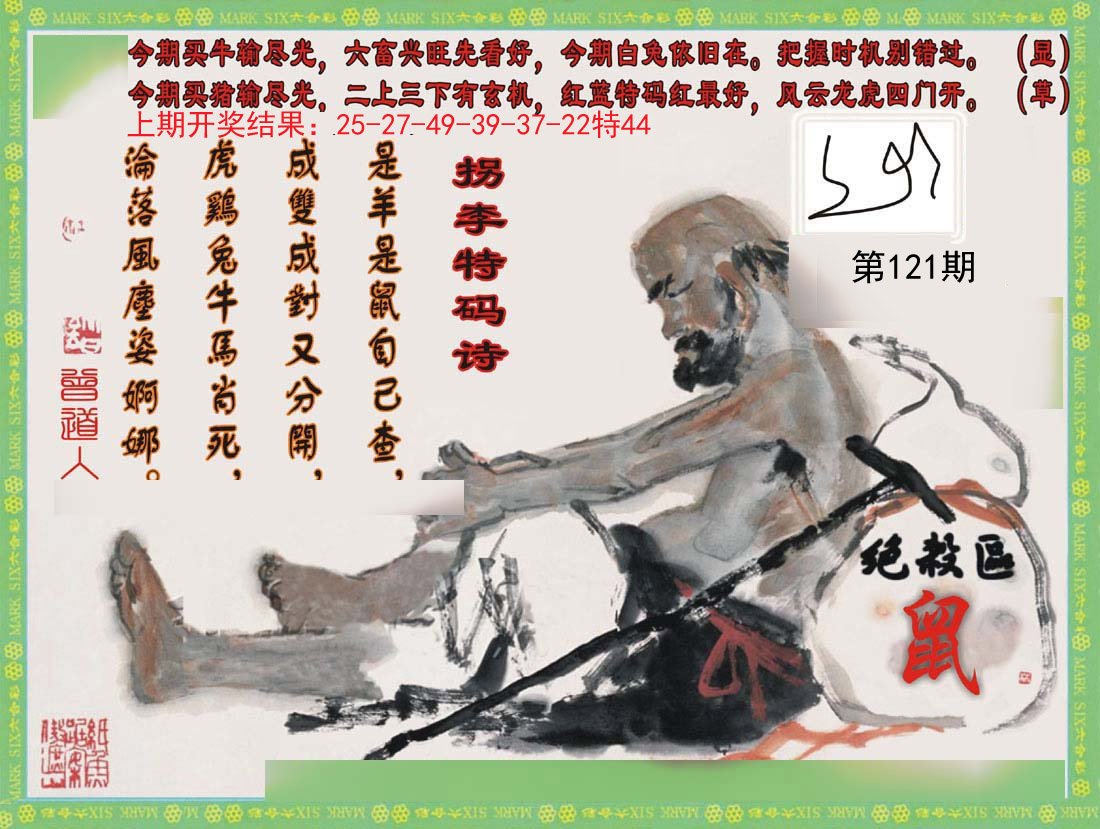 今期买牛输尽光，六畜兴旺先看好，今期白兔依旧在。把握时机别错过。（显）
今期买猪输尽光，二上三下有玄机，红蓝特码红最好，风云龙虎四门开。（草）
上期开奖结果：25-27-49-39-37-22特44
第121期
拐李特码诗
是羊是鼠自己查，
成雙成對又分開，
虎鷄兔牛馬肖死，
淪落風塵姿婀娜。
曾道人
绝殺區
鼠
MARK SIX六合彩